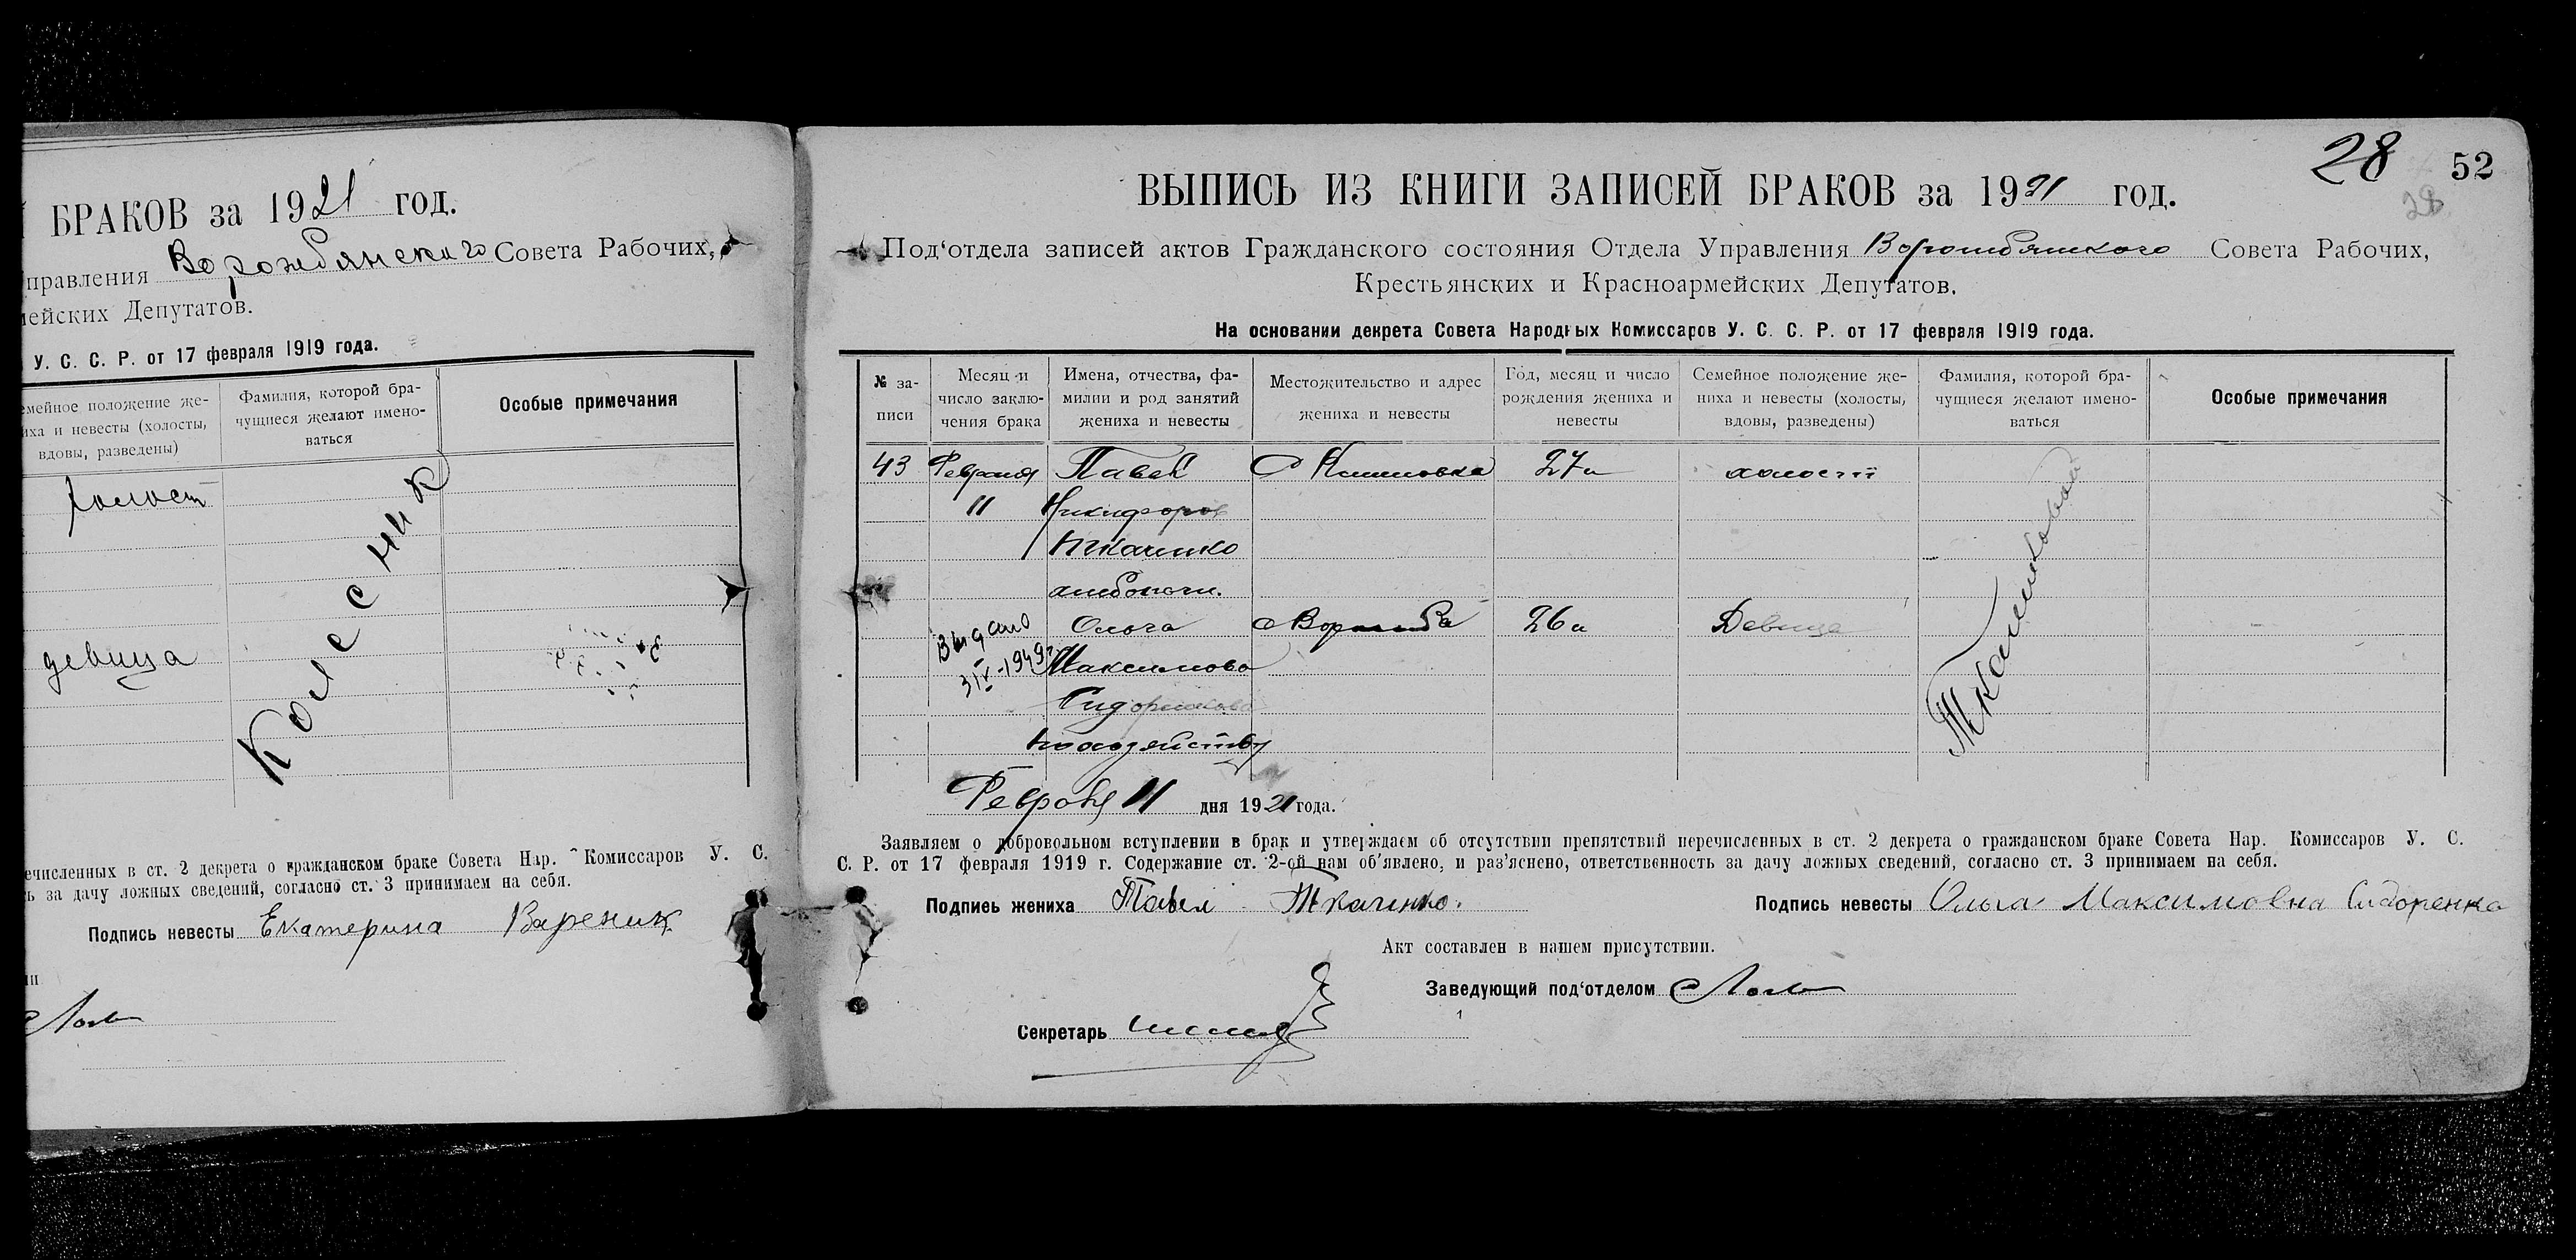 БРАКОВ за 1921 год.
правления Ворожбянского Совета Рабочих,
мейских Депутатов.
У. С. С. Р. от 17 февраля 1919 года.
емейное положение же-
иха и невесты (холосты,
вдовы, разведены)
Фамилия, которой бра-
чущиеся желают имено-
ваться
Особые примечания
холост
Колесник
девица
ечисленных в ст. 2 декрета о гражданском браке Совета Нар. Комиссаров У. С.
ь за дачу ложных сведений, согласно ст. 3 принимаем на себя.
Подпись невесты Екатерина Вареник
28 52
28
ВЫПИСЬ ИЗ КНИГИ ЗАПИСЕЙ БРАКОВ за 1921 год.
Под‘отдела записей актов Гражданского состояния Отдела Управления Ворожбянского Совета Рабочих,
Крестьянских и Красноармейских Депутатов.
На основании декрета Совета Народных Комиссаров У. С. С. Р. от 17 февраля 1919 года.
№ за-
писи
Месяц и
число заклю-
чения брака
Имена, отчества, фа-
милии и род занятий
жениха и невесты
Местожительство и адрес
жениха и невесты
Год, месяц и число
рождения жениха и
невесты
Семейное положение же-
ниха и невесты (холосты,
вдовы, разведены)
Фамилия, которой бра-
чущиеся желают имено-
ваться
Особые примечания
43 Февраля Павел 27 холост
11 Никифоров
Ткаченко
хлебопаш.
Выдано Ольга с Ворожба 26 Девица
3/IV-1949г Максимова
Сидоренкова
по хозяйству
Ткаченковой
Февраля 11 дня 1921 года.
Заявляем о добровольном вступлении в брак и утверждаем об отсутствии препятствий перечисленных в ст. 2 декрета о гражданском браке Совета Нар. Комиссаров У. С.
С. Р. от 17 февраля 1919 г. Содержание ст. 2-ой нам об‘явлено, и раз‘яснено, ответственность за дачу ложных сведений, согласно ст. 3 принимаем на себя.
Подпись жениха Павел Ткаченко.
Подпись невесты Ольга Максимовна Сидоренко
Акт составлен в нашем присутствии.
Заведующий под‘отделом
Секретарь